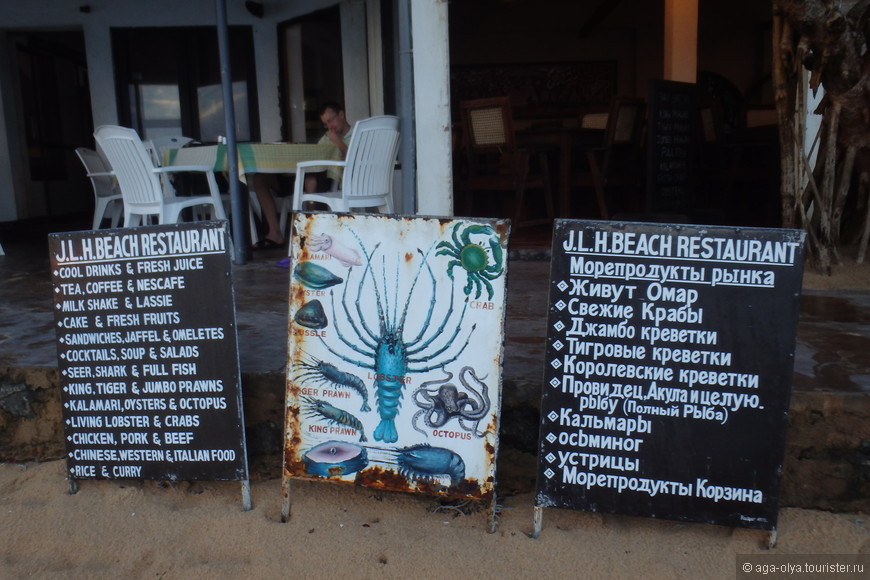 J.L.H.BEACH RESTAURANT
COOL DRINKS & FRESH JUICE
TEA, COFFEE & NESCAFE
MILK SHAKE & LASSIE
CAKE & FRESH FRUITS
SANDWICHES,JAFFEL & OMELETES
COCKTAILS,SOUP & SALADS
SEER,SHARK & FULL FISH
KING,TIGER & JUMBO PRAWNS
KALAMARI,OYSTERS & OCTOPUS
LIVING LOBSTER & CRABS
CHICKEN, PORK & BEEF
CHINESE,WESTERN & ITALIAN FOOD
RICE & CURRY
CRAB
LOBSTER
KING PRAWN
OCTOPUS
J.L.H.BEACH RESTAURANT
Морепродукты рынка
Живут Омар
Свежие Крабы
Джамбо креветки
Тигровые креветки
Королевские креветки
Провидец,Акула и целую.
рыбу (Полный Рыба)
Кальмары
осьминог
устрицы
Морепродукты Корзина
© aga-olya.tourister.ru